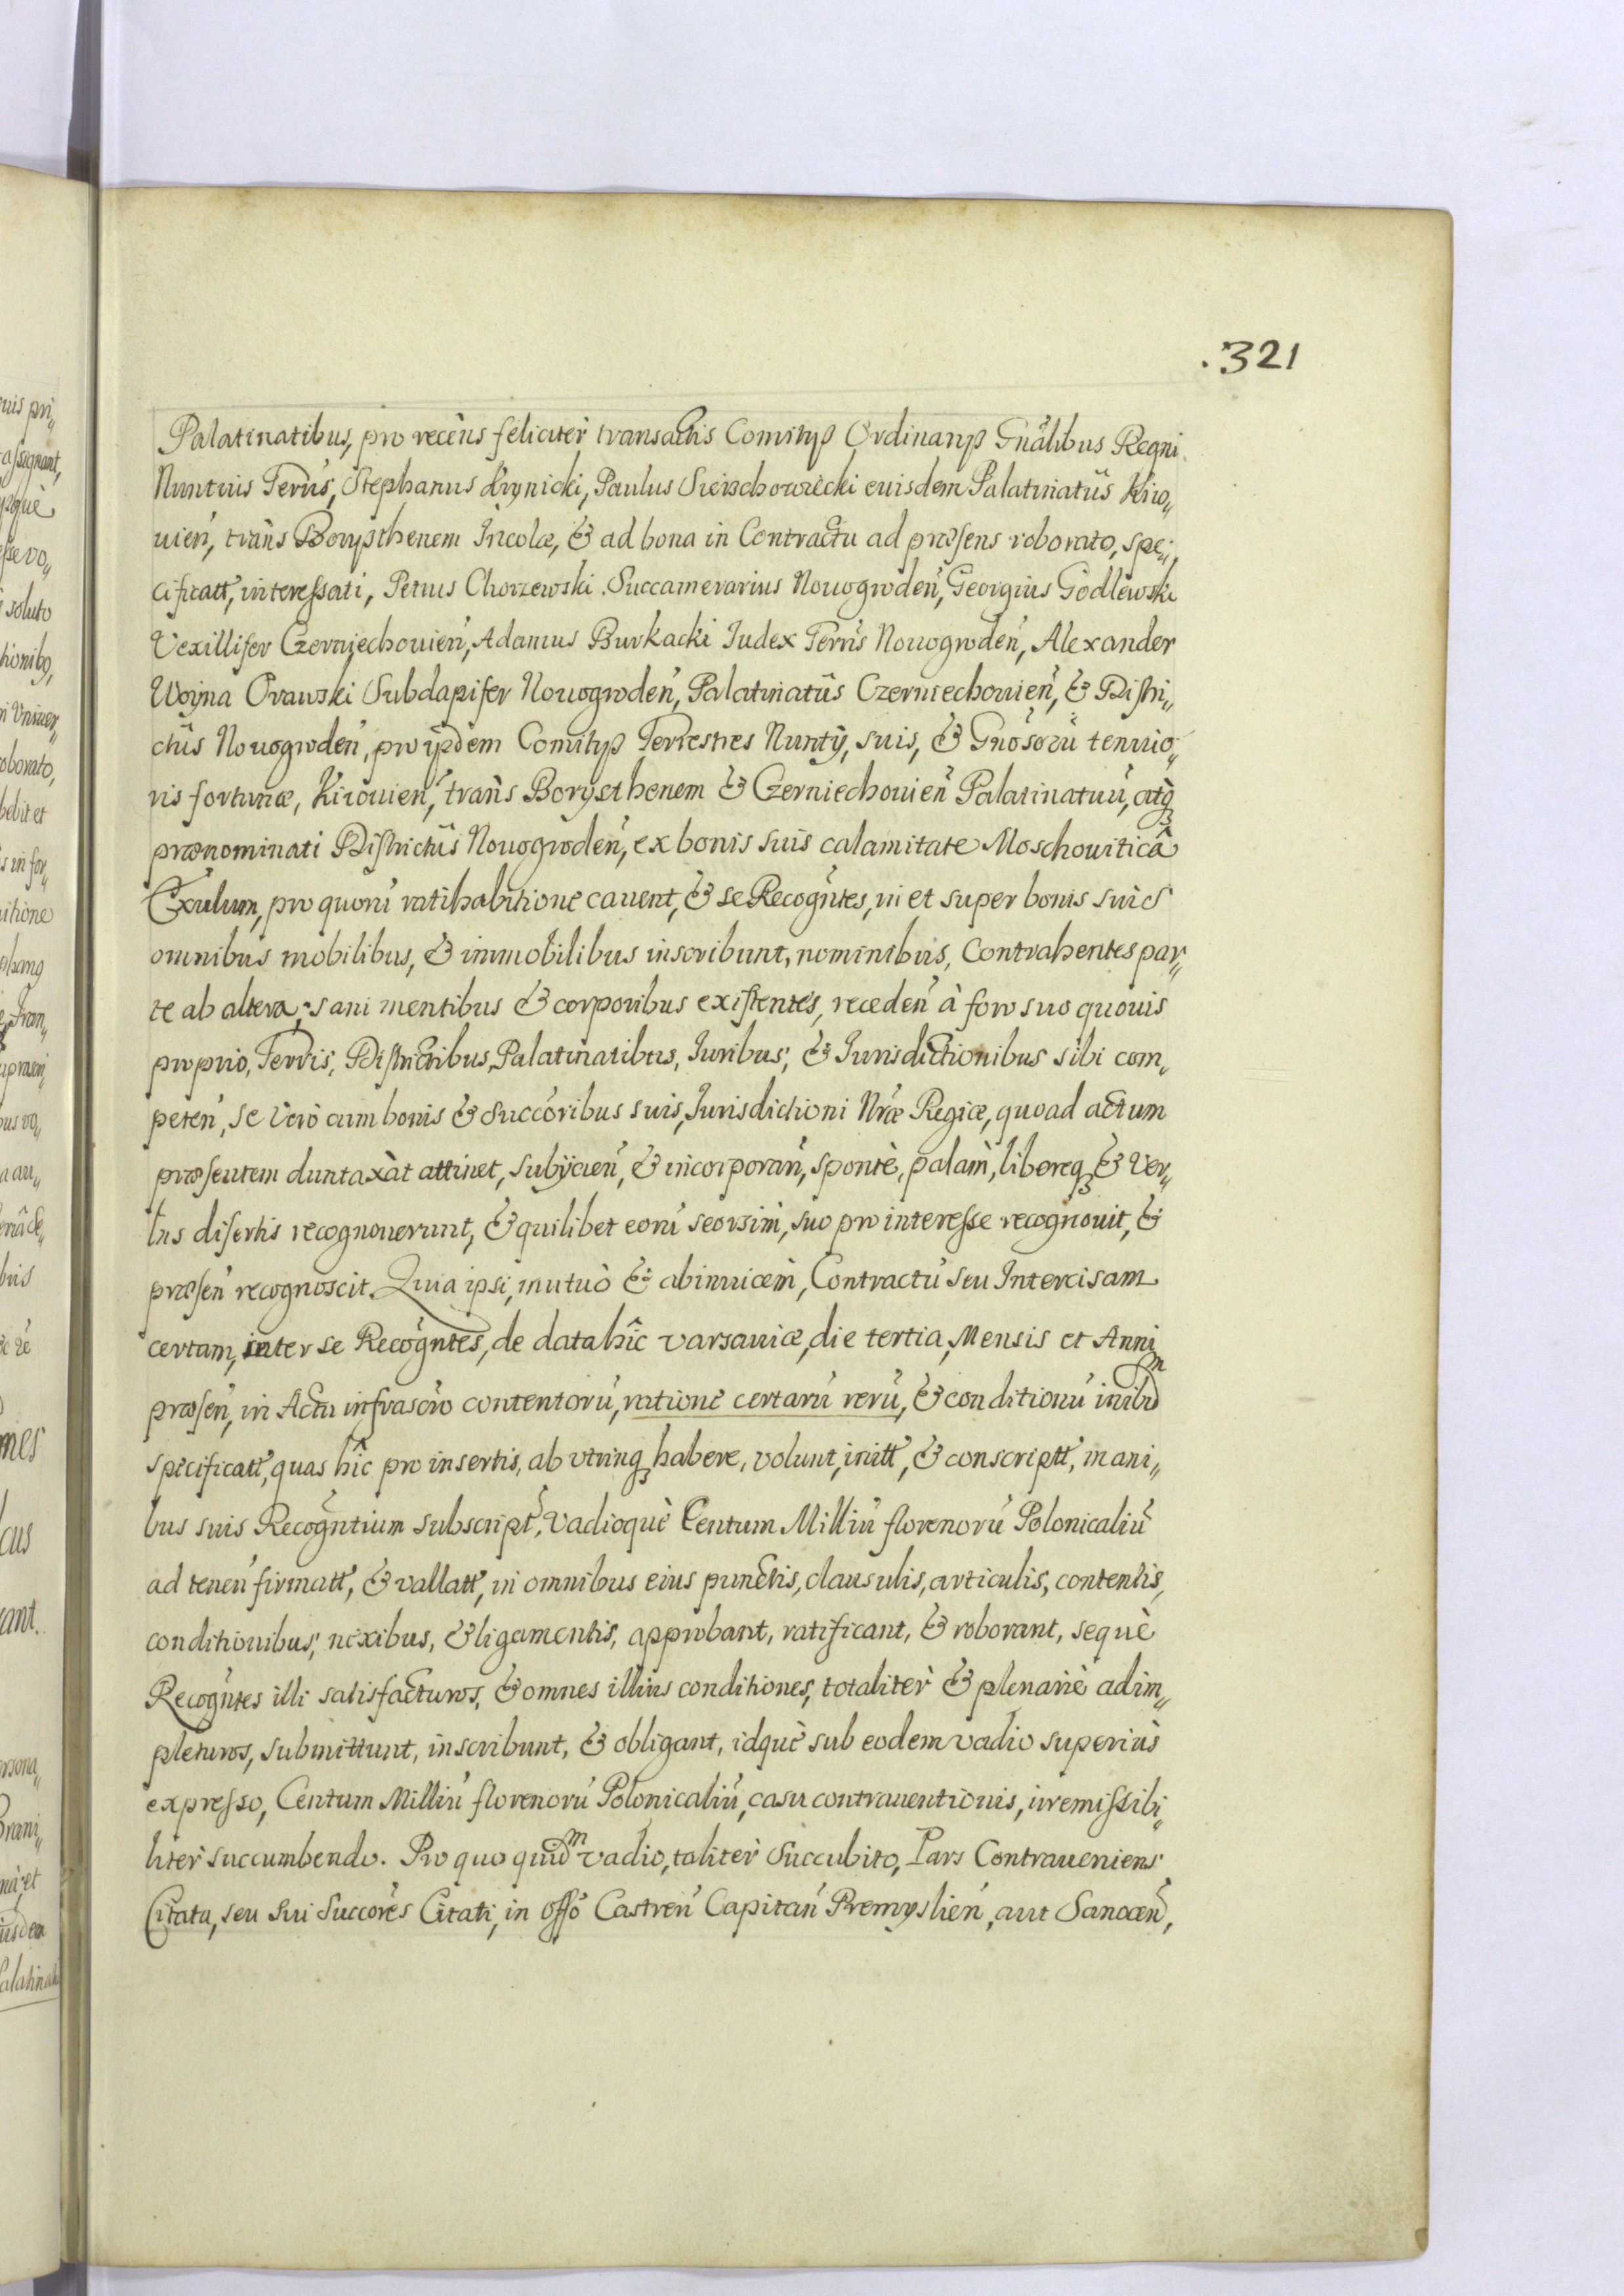 .321
Palatinatibus, pro recèns féliciter transactis Comitÿs Ordinarÿs Gnâlibus Regni
Nuntius Terris, Stephanus Krynicki, Paulus Sieischowiecki eiusdem Palatinatûs Kiio„
uien, trans Borysthenem Incolæ, & ad bona in Contractu ad præsens roborato, spe„
cificatt, interessati, Petrus Chorzewski Succamerarius Nouogroden, Georgius Godlewski
Vexillifer Czerniechouien, Adamus Burkacki Iudex Terris Nouogroden, Alexander
Woyna Oranski Subdapifer Nouogroden, Palatinatûs Czerniechouien, & Distri„
ctûs Nouogroden, pro ÿsdem Comitÿs Terrestres Nuntÿ, suis, & Gnosorũ tenuio„
ris fortunæ, Kiiouien, trans Borysthenem & Czerniechouien Palatinatuũ, atq
prænominati Districtûs Nouogroden, ex bonis suis calamitate Moschouiticâ
Exulum, pro quorũ ratihabitione cauent, & se Recogntes, in et super bonis suis
omnibus mobilibus, & immobilibus inscribunt, nominibus, Contrahentes par„
te ab altera, sani mentibus & corporibus existentes, receden à foro suo quouis
proprio, Terris, Districtibus, Palatinatibus, Iuribus, & Iurisdictionibus sibi com„
peten, se verò cum bonis & Succoribus suis, Iurisdictioni Nræ Regiæ, quoad actum
præsentem duntaxàt attinet, subÿcien, & incorporan, sponte, palàm, libereq & Ver„
bis disertis recognouerunt, & quilibet eorũ seorsim, suo pro interesse recognouit, &
præsen recognoscit. Quia ipsi, mutuò & abinuicem, Contractũ seu Intercisam
certam, inter se Recogntes, de data hîc Varsauiæ, die tertia, Mensis et Anni
præsen, in Actu infrascro contentorũ, ratione certarũ rerũ, & conditionũ inibidm
specificatt, quas hîc pro insertis, ab vtrinq habere, volunt, initt, & conscriptt, mani„
bus suis Recogntium subscript, Vadioquè Centum Milliũ florenorũ Polonicaliũ
ad tenen firmatt, & vallatt, in omnibus eius punctis, clausulis, articulis, contentis,
conditionibus, nexibus, & ligamentis, approbant, ratificant, & roborant, sequè
Recogntes illi satisfacturos, & omnes illius conditiones, totaliter & plenariè adim„
pleturos, submittunt, inscribunt, & obligant, idquè sub eodem vadio superiùs
expresso, Centum Milliũ florenorũ Polonicaliũ, casu contrauentionis, irremissibi„
liter succumbendo. Pro quo quidm vadio, taliter Succubito, Pars Contraueniens
Citata, seu sui Succores Citati, in Offo Castren Capitan Premyslien, aut Sanocen,